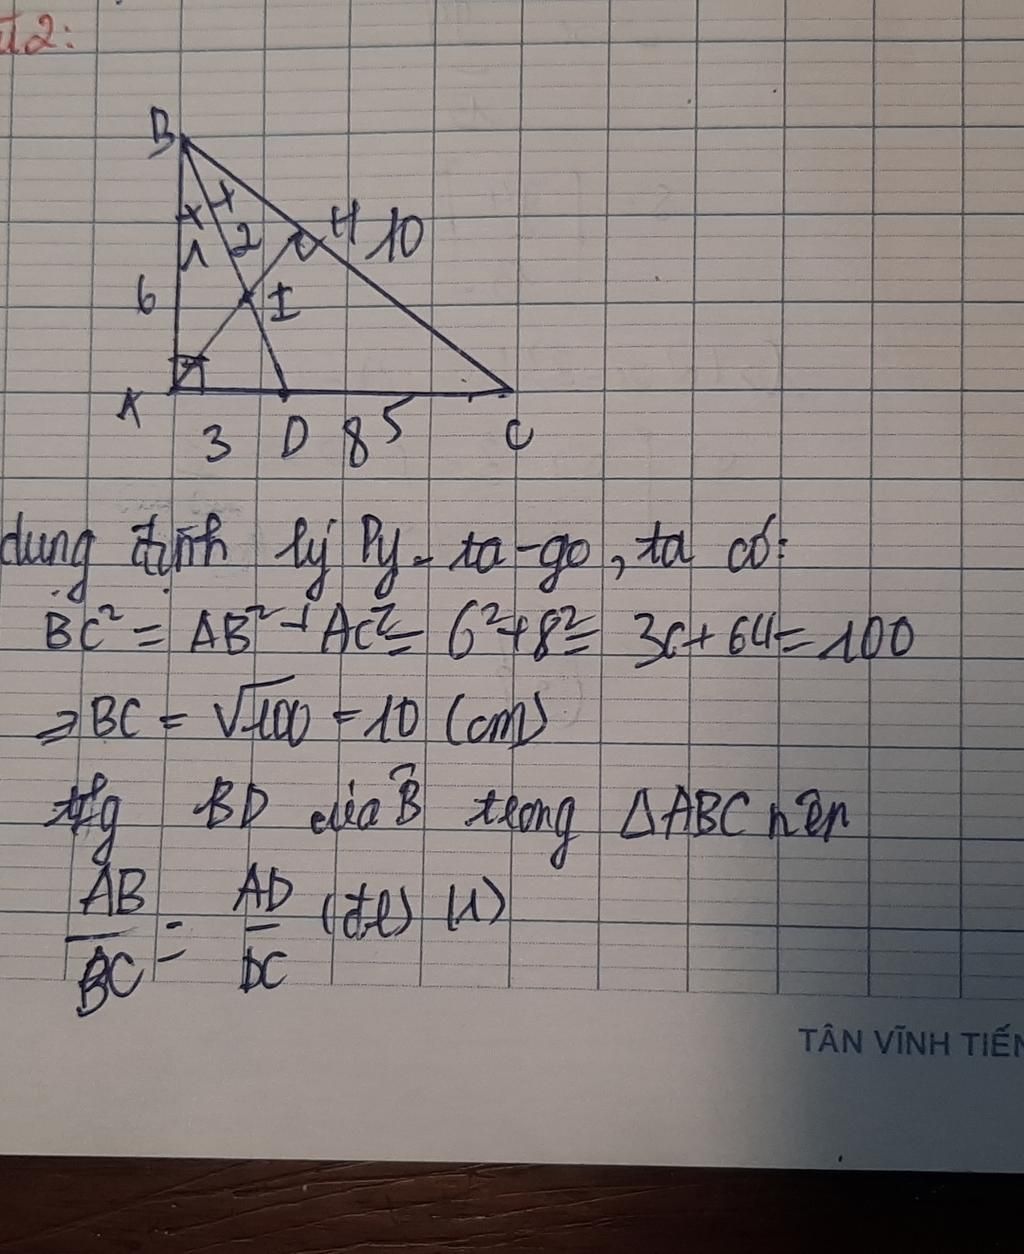 t2:
B
1 2 H 10
6 I
A
3 D 8 5 C
dụng định lý Py-ta-go, ta có:
BC² = AB² + AC² = 6² + 8² = 36 + 64 = 100
⇒ BC = √100 = 10 (cm)
BD của B̂ trong ΔABC nên
AB/BC = AD/DC (1)
TÂN VĨNH TIẾN